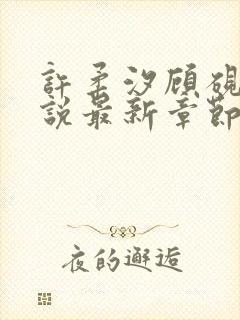 許柔汐顧硯
說最新章節
夜的邂逅